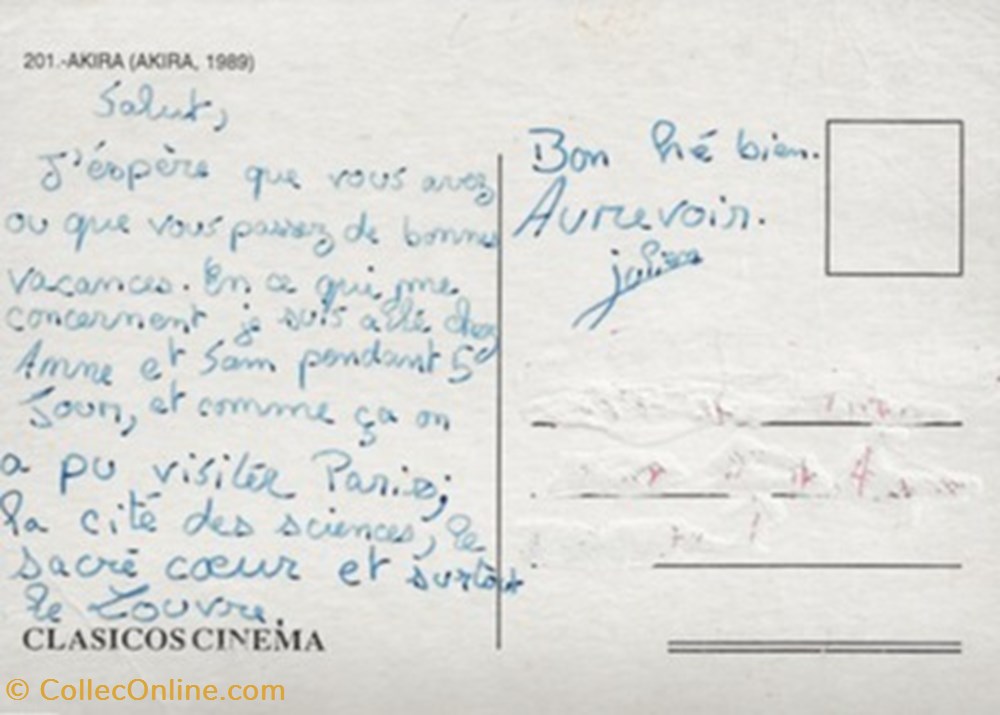 201.-AKIRA (AKIRA, 1989)
Salut,
J'éspère que vous avez
ou que vous passez de bonnes
vacances. En ce qui me
concernent je suis allé chez
Anne et Sam pendant 5
Jour, et comme ça on
a pu visitée Paris,
la cité des sciences, le
sacré cœur et surtout
le Louvre.
CLASICOS CINEMA
Bon hé bien.
Aurevoir.
julien
© CollecOnline.com